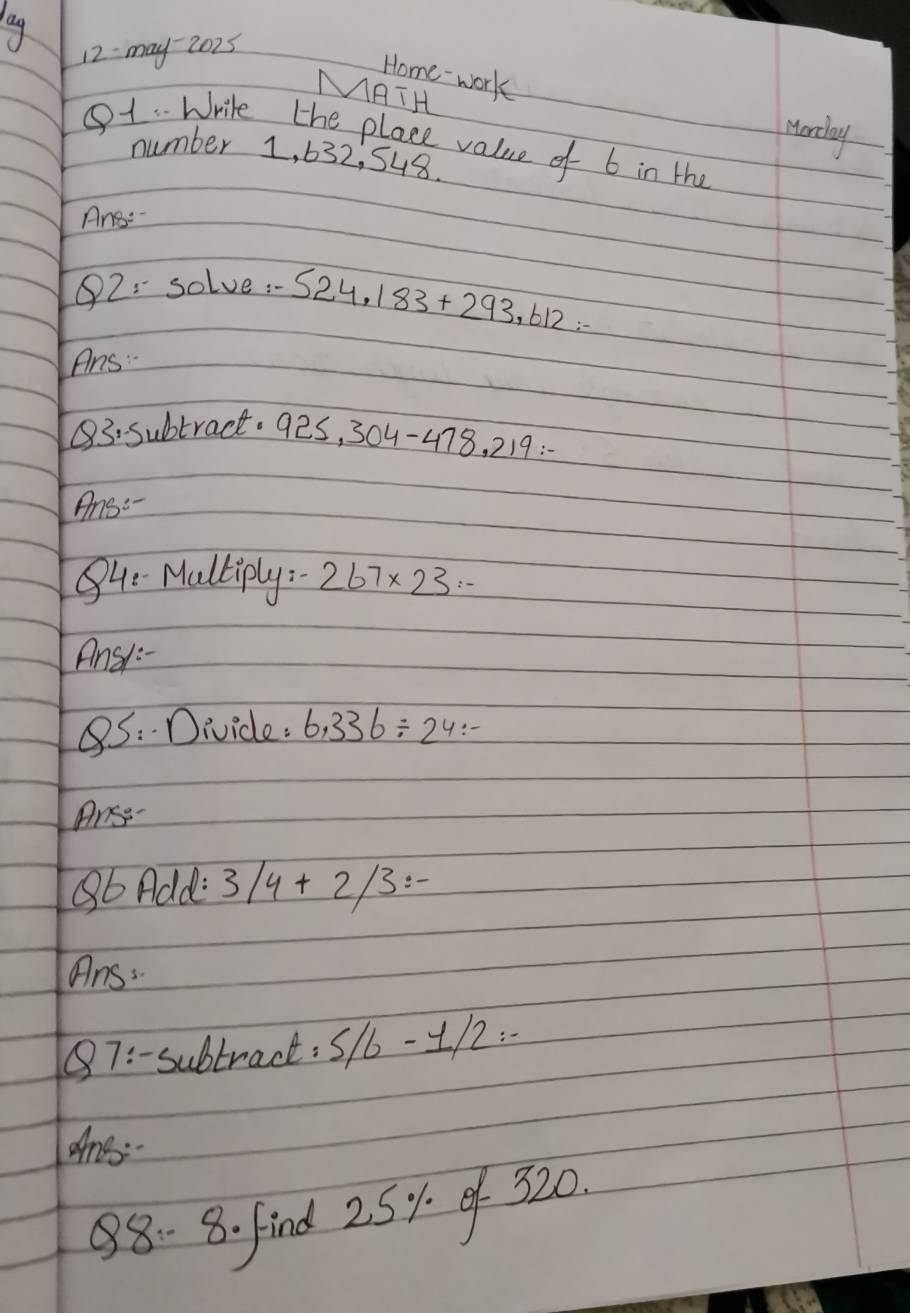 ay
12-may-2025
Home-work
MATH
Monday
Q1:- Write the place value of 6 in the
number 1,632,548.
Ans:-
Q2:- solve:- 524,183 + 293,612 :-
Ans:-
Q3:Subtract. 925,304-478,219:-
Ans:-
Q4:- Multiply:- 267 x 23 :-
Ans/:-
Q5:- Divide: 6,336 ÷ 24:-
Ans:-
Q6 Add: 3/4 + 2/3 :-
Ans:-
Q7:-subtract: 5/6 - 1/2 :-
Ans:-
Q8:- 8. find 25% of 320.